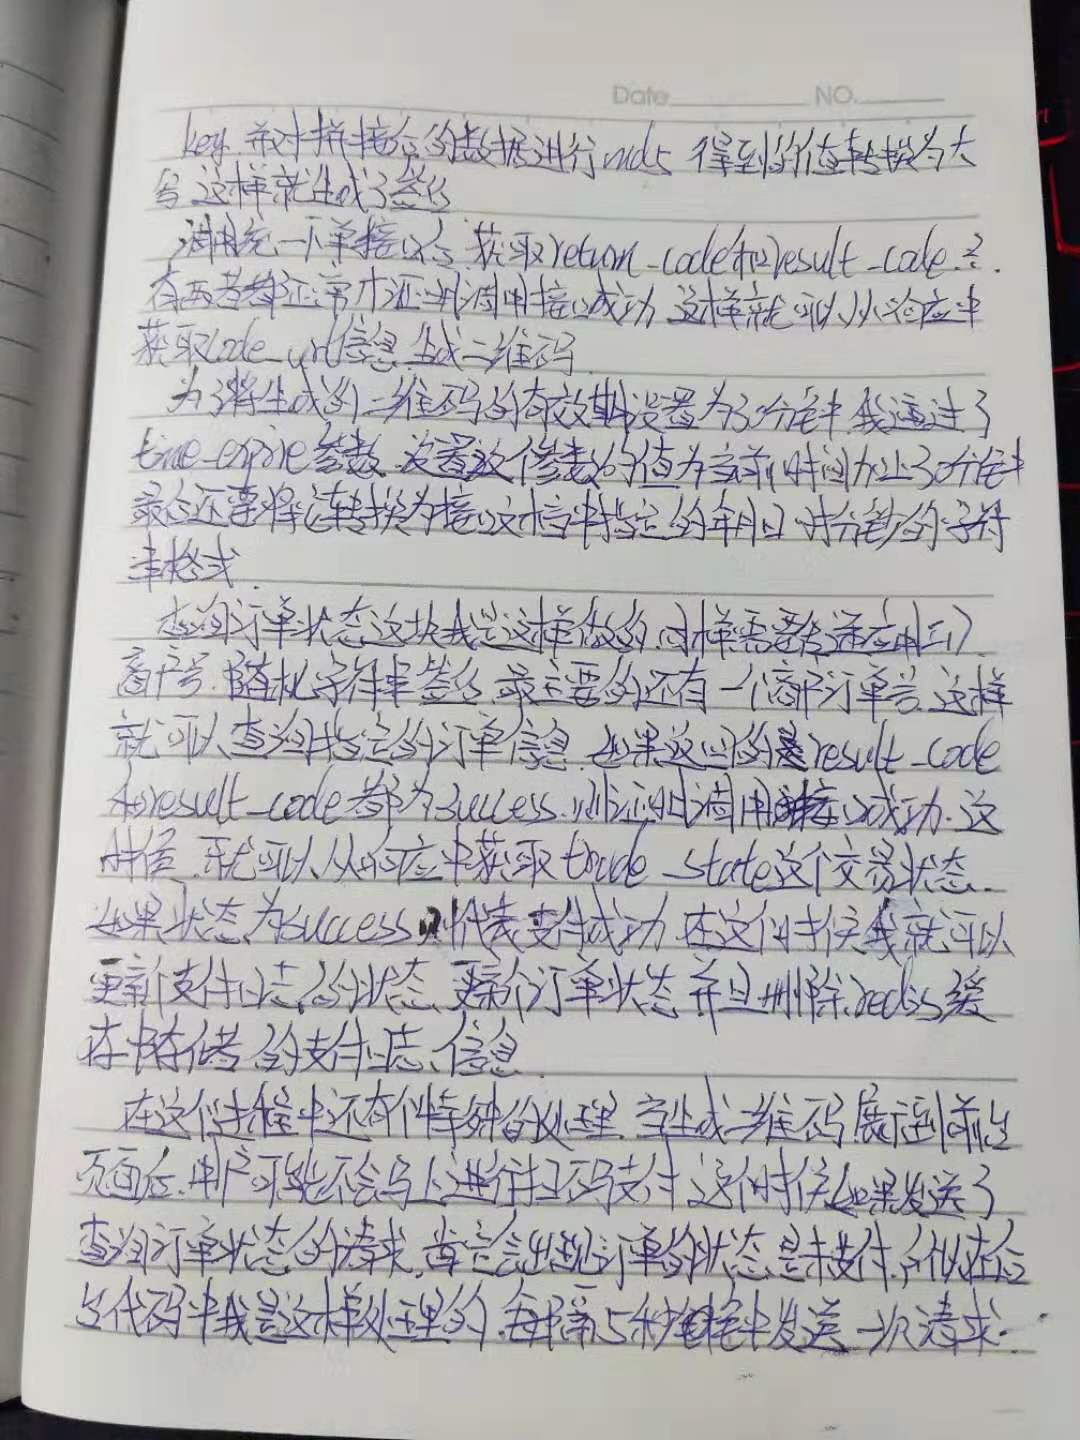 Date NO.
key 并对拼接后的数据进行md5 得到的值转换为大
写 这样就生成了签名
调用统一下单接口后,获取return_code和result_code,只
有两者都正常才证明调用接口成功 这样就可以从响应中
获取code_url信息,生成二维码.
为了将生成的二维码的有效期设置为30分钟,我通过了
time_expire参数,设置这个参数的值为当前时间加上30分钟
最后还要将它转换为接口文档中指定的年月日时分秒的字符
串格式.
查询订单状态这块我是这样做的,同样需要传递应用ID
商户号,随机字符串 签名 最主要的还有一个商户订单号,这样
就可以查询指定的订单信息,如果返回的是result_code
和result_code都为success,则证明调用接口成功,这
时候,就可以从响应中获取trade_state这个交易状态.
如果状态为success则代表支付成功,在这个时候我就可以
更新支付日志的状态,更新订单状态 并且删除redis缓
存中存储的支付日志信息.
在这个过程中还有个特殊的处理,当生成二维码展示到前端
页面后,用户可能不会马上进行扫码支付,这个时候如果发送了
查询订单状态的请求,肯定会出现订单的状态是未支付,所以在后
台代码中我是这样处理的,每隔5秒钟发送一次请求.